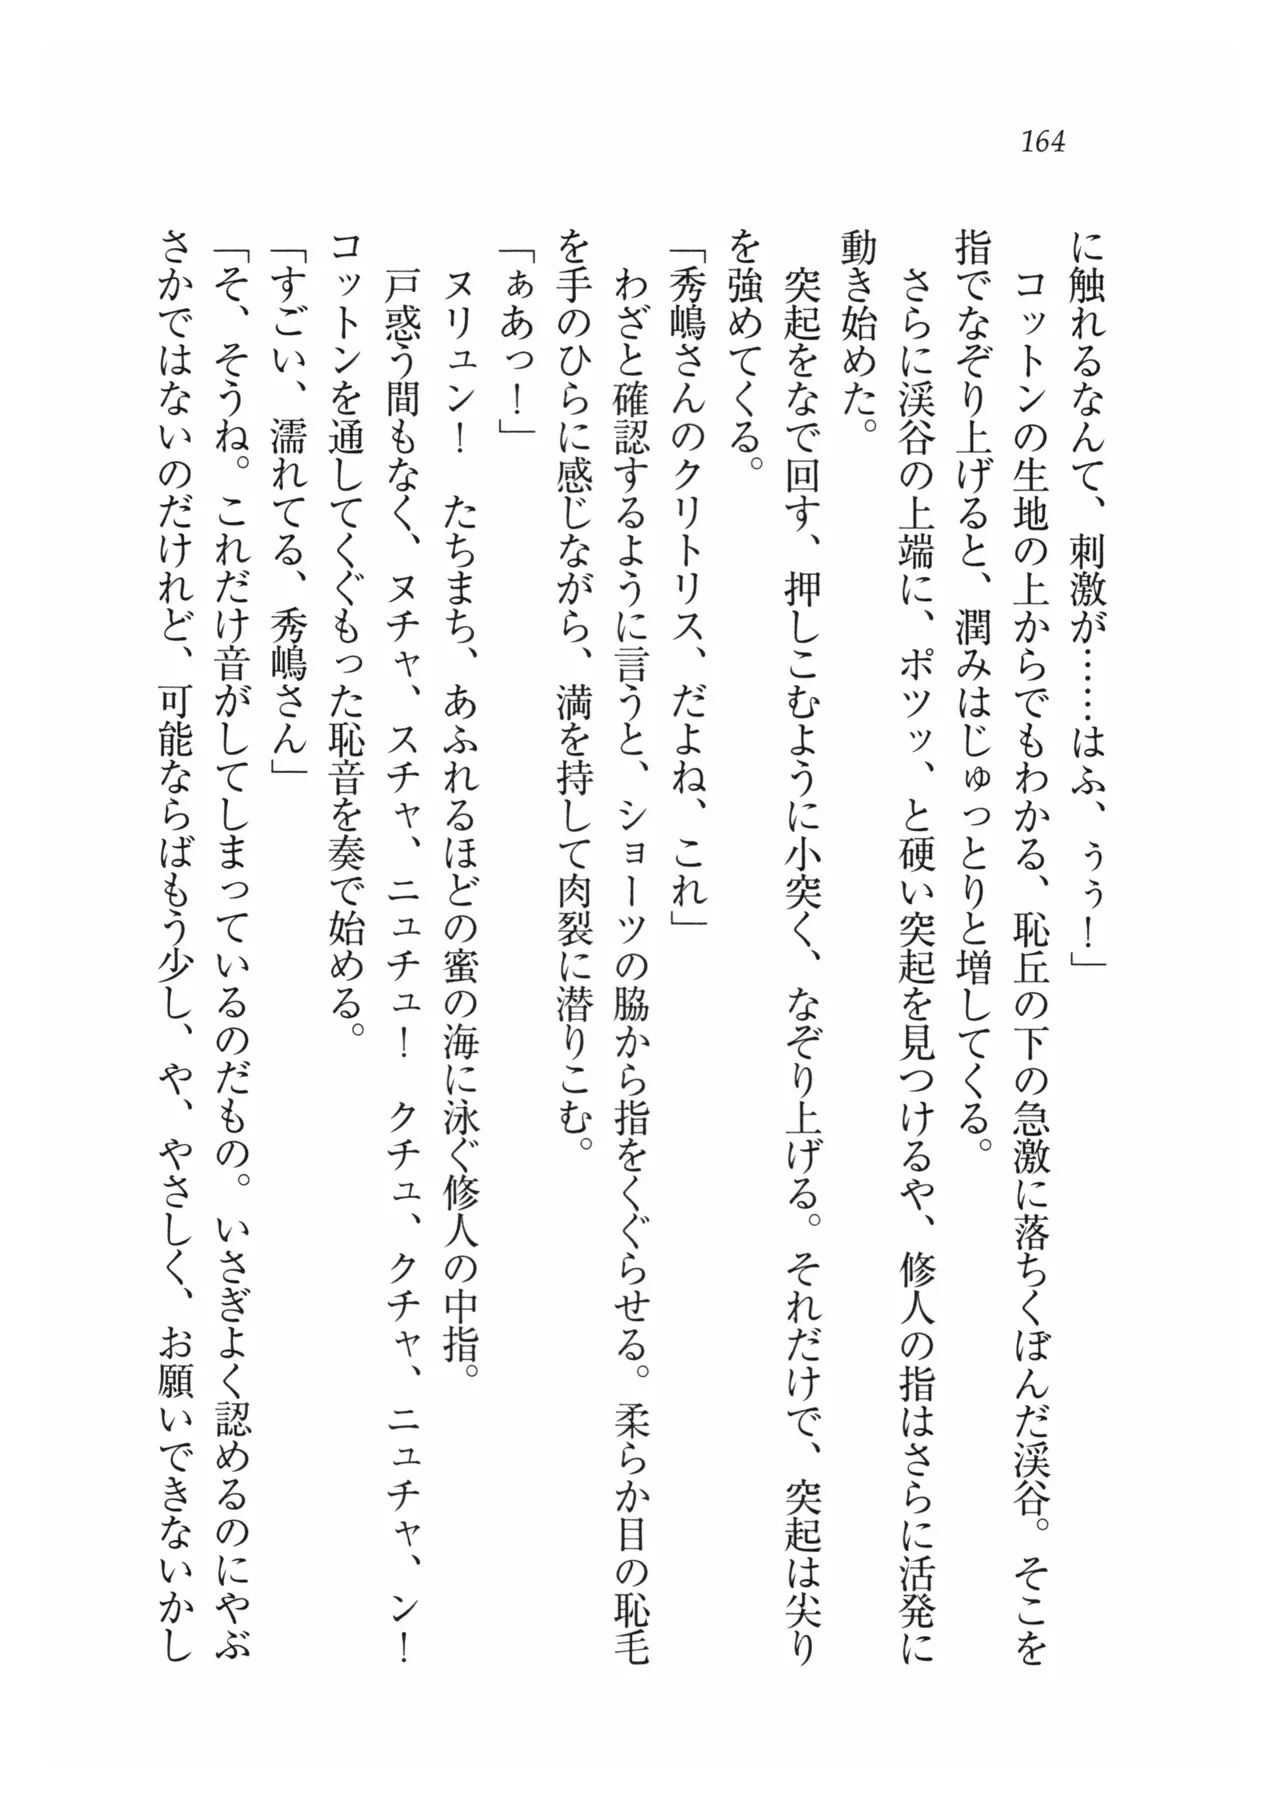 164
に触れるなんて、刺激が……はふ、ぅぅ！」
コットンの生地の上からでもわかる、恥丘の下の急激に落ちくぼんだ渓谷。そこを
指でなぞり上げると、潤みはじゅっとりと増してくる。
さらに渓谷の上端に、ポツッ、と硬い突起を見つけるや、修人の指はさらに活発に
動き始めた。
突起をなで回す、押しこむように小突く、なぞり上げる。それだけで、突起は尖り
を強めてくる。
「秀嶋さんのクリトリス、だよね、これ」
わざと確認するように言うと、ショーツの脇から指をくぐらせる。柔らか目の恥毛
を手のひらに感じながら、満を持して肉裂に潜りこむ。
「ぁあっ！」
ヌリュン！　たちまち、あふれるほどの蜜の海に泳ぐ修人の中指。
戸惑う間もなく、ヌチャ、スチャ、ニュチュ！　クチュ、クチャ、ニュチャ、ン！
コットンを通してくぐもった恥音を奏で始める。
「すごい、濡れてる、秀嶋さん」
「そ、そうね。これだけ音がしてしまっているのだもの。いさぎよく認めるのにやぶ
さかではないのだけれど、可能ならばもう少し、や、やさしく、お願いできないかし